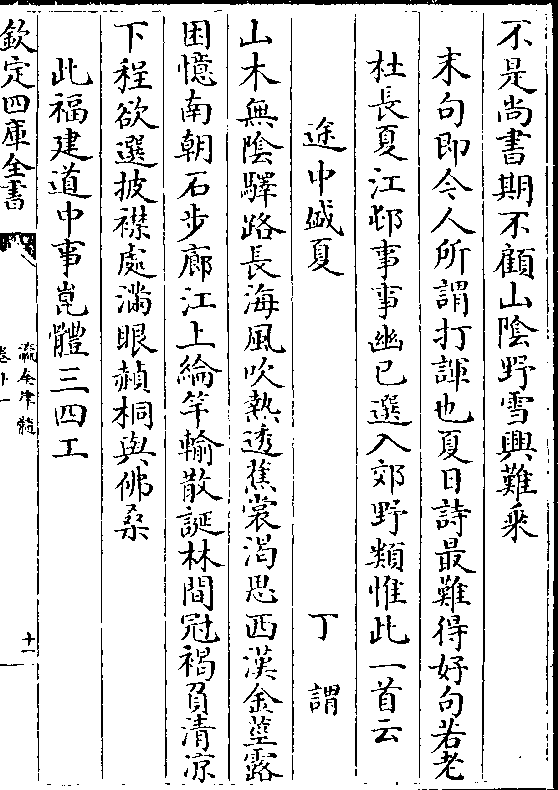 不是尚書期不顧山陰野雪興難乘
末句即今人所謂打諢也夏日詩最難得好句若老
杜長夏江邨事事幽已選入郊野類惟此一首云
途中盛夏 丁謂
山木無陰驛路長海風吹熱透蕉裳渴思西漢金莖露
困憶南朝石步廊江上綸竿輸散誕林間冠褐負清凉
下程欲選披襟處滿眼赬桐與佛桑
此福建道中事崑體三四工
欽定四庫全書
瀛奎律髓
卷十一
十一